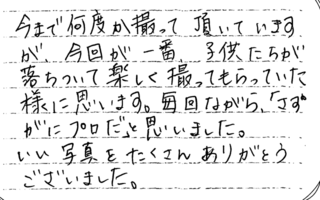 今まで何度か撮って頂いています
が、今回が一番、子供たちが
落ちついて楽しく撮ってもらっていた
様に思います。毎回ながら、「さす
がにプロだ」と思いました。
いい写真をたくさんありがとう
ございました。